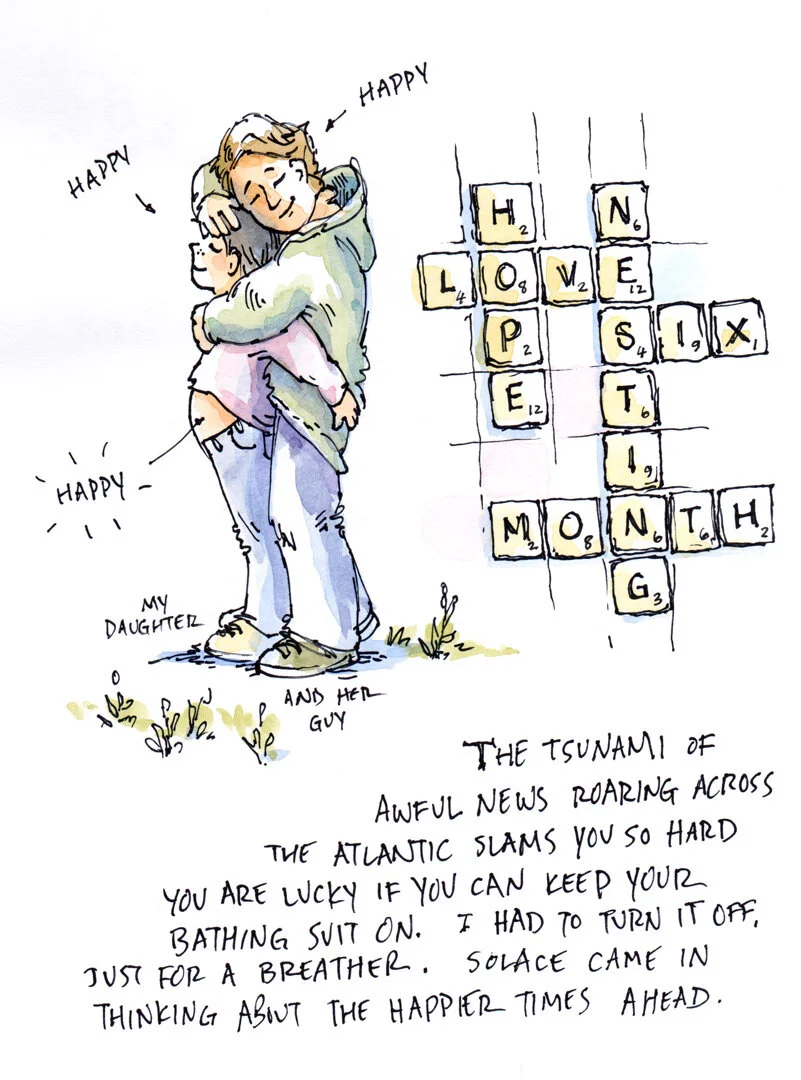 HAPPY
HAPPY
HAPPY
MY
DAUGHTER
AND HER
GUY
H2 N6
L4 O8 V2 E12
P2 S4 I9 X1
E12 T6
I9
M2 O8 N6 T6 H2
G3
THE TSUNAMI OF
AWFUL NEWS ROARING ACROSS
THE ATLANTIC SLAMS YOU SO HARD
YOU ARE LUCKY IF YOU CAN KEEP YOUR
BATHING SUIT ON. I HAD TO TURN IT OFF,
JUST FOR A BREATHER. SOLACE CAME IN
THINKING ABOUT THE HAPPIER TIMES AHEAD.